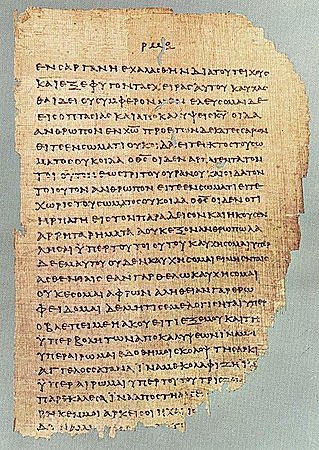 ΕΝϹΑΡΓΑΝΗΕΧΑΛΑϹΘΗΝΔΙΑΤΟΥΤΕΙΧΟΥϹ
ΚΑΙΕΞΕΦΥΓΟΝΤΑϹΧΕΙΡΑϹΑΥΤΟΥΚΑΥΧΑϹ
ΘΑΙΔΕΙΟΥϹΥΜΦΕΡΟΝΜΕΝΕΛΕΥϹΟΜΑΙΔΕ
ΕΙϹΟΠΤΑϹΙΑϹΚΑΙΑΠΟΚΑΛΥΨΕΙϹΚ̅Υ̅ΟΙΔΑ
ΑΝΘΡΩΠΟΝΕΝΧ̅Ω̅ΠΡΟΕΤΩΝΔΕΚΑΤΕϹϹΑΡΩΝ
ΕΙΤΕΕΝϹΩΜΑΤΙΟΥΚΟΙΔΑΕΙΤΕΕΚΤΟϹΤΟΥϹΩ
ΜΑΤΟϹΟΥΚΟΙΔΑΟΘ̅Ϲ̅ΟΙΔΕΝΑΡΠΑΓΕΝΤΑΤΟΝ
ΤΟΙΟΥΤΟΝΕΩϹΤΡΙΤΟΥΟΥΡΑΝΟΥΚΑΙΟΙΔΑΤΟΝ
ΤΟΙΟΥΤΟΝΑΝΘΡΩΠΟΝΕΙΤΕΕΝϹΩΜΑΤΙΕΙΤΕ
ΧΩΡΙϹΤΟΥϹΩΜΑΤΟϹΟΥΚΟΙΔΑΟΘ̅Ϲ̅ΟΙΔΕΝΟΤΙ
ΗΡΠΑΓΗΕΙϹΤΟΝΠΑΡΑΔΕΙϹΟΝΚΑΙΗΚΟΥϹΕΝ
ΑΡΡΗΤΑΡΗΜΑΤΑΑΟΥΚΕΞΟΝΑΝΘΡΩΠΩΛΑ
ΛΗϹΑΙΫΠΕΡΤΟΥΤΟΙΟΥΤΟΥΚΑΥΧΗϹΟΜΑΙΥΠΕΡ
ΔΕΕΜΑΥΤΟΥΟΥΔΕΝΚΑΥΧΗϹΟΜΑΙΕΙΜΗΕΝΤΑΙϹ
ΑϹΘΕΝΕΙΑΙϹΕΑΝΓΑΡΘΕΛΩΚΑΥΧΗϹΟΜΑΙ
ΟΥΚΕϹΟΜΑΙΑΦΡΩΝΑΛΗΘΕΙΑΝΓΑΡΕΡΩ
ΦΕΙΔΟΜΑΙΔΕΜΗΤΙϹΕΜΕΛΟΓΙϹΗΤΑΙΥΠΕΡ
ΟΒΛΕΠΕΙΜΕΗΑΚΟΥΕΙΤΙΕΞΕΜΟΥΚΑΙΤΗ
ΫΠΕΡΒΟΛΗΤΩΝΑΠΟΚΑΛΥΨΕΩΝΙΝΑΜΗ
ΥΠΕΡΑΙΡΩΜΑΙΕΔΟΘΗΜΟΙϹΚΟΛΟΨΤΗϹΑΡΚΙ
ΑΓΓΕΛΟϹϹΑΤΑΝΑΙΝΑΜΕΚΟΛΑΦΙΖΗΙΝΑ
ΫΠΕΡΑΙΡΩΜΑΙΥΠΕΡΤΟΥΤΟΥΤΡΙϹΤΟΝ
ΠΑΡΕΚΑΛΕϹΑΙΝΑΑΠΟϹΤΗ
ΡΗΚΕΝΜΟΙΑΡΚΕΙϹΟΙΗΧΑΡΙϹ